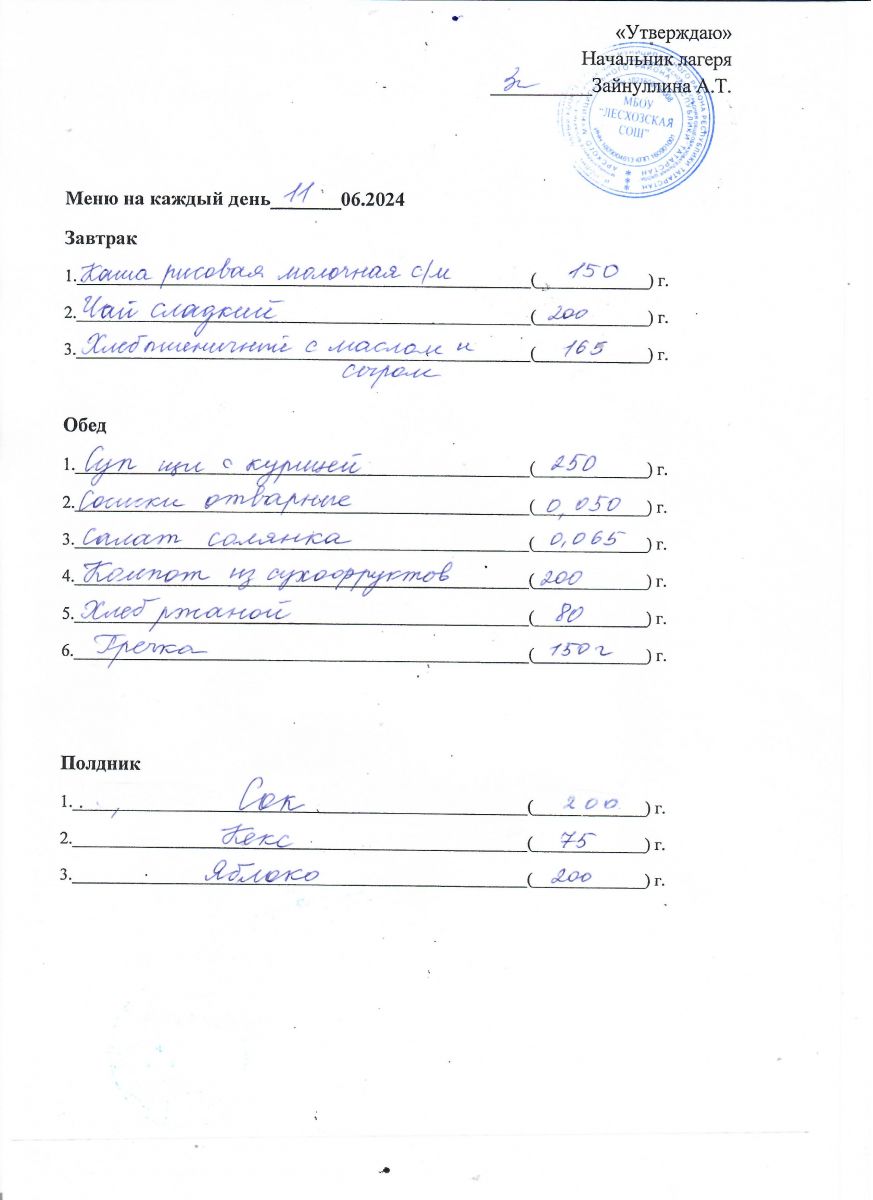 «Утверждаю»
Начальник лагеря
Зайнуллина А.Т.
МБОУ
"ЛЕСХОЗСКАЯ
СОШ"
Меню на каждый день 11 06.2024
Завтрак
1. Каша рисовая молочная с/м ( 150 ) г.
2. Чай сладкий ( 200 ) г.
3. Хлеб пшеничный с маслом и ( 165 ) г.
сыром
Обед
1. Суп щи с курицей ( 250 ) г.
2. Сосиски отварные ( 0,050 ) г.
3. Салат солянка ( 0,065 ) г.
4. Компот из сухофруктов ( 200 ) г.
5. Хлеб ржаной ( 80 ) г.
6. Гречка ( 150 г ) г.
Полдник
1. Сок ( 200 ) г.
2. Кекс ( 75 ) г.
3. Яблоко ( 200 ) г.